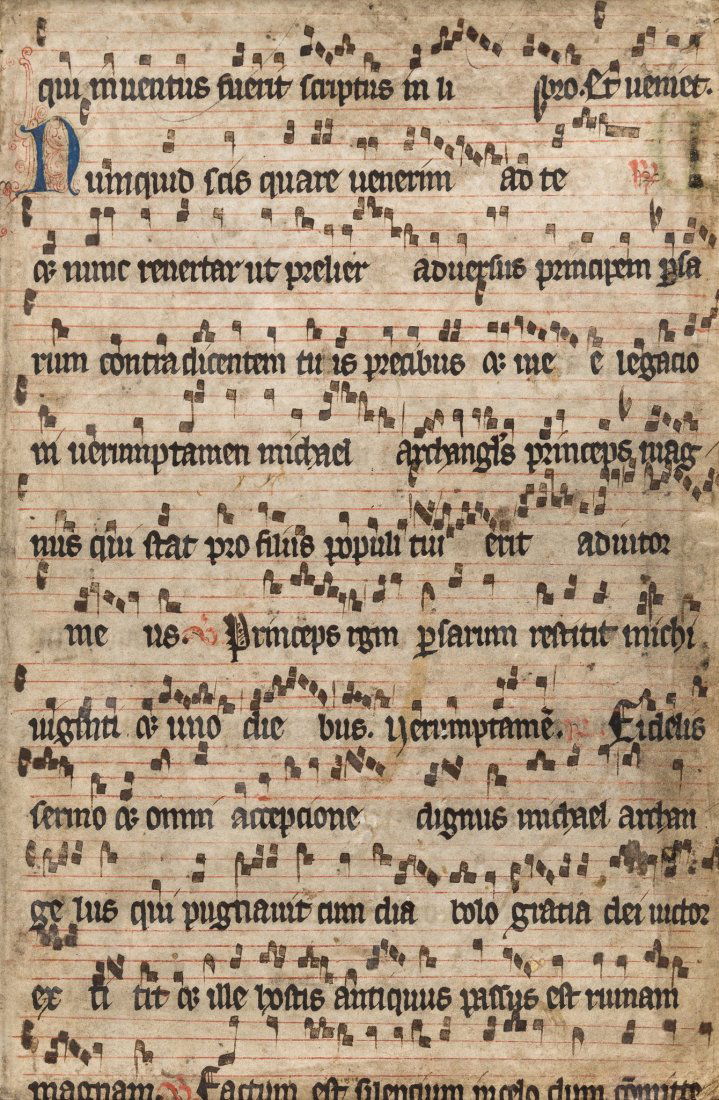 qui inuentus fuerit scriptus in li bro. Et ueniet.
Numquid scis quare uenerim ad te
& nunc reuertar ut prelier aduersus principem persa
rum contradicentem tu is precibus & me e legacio
ni uerumptamen michael archangls princeps mag
nus qui stat pro filiis populi tui erit adiutor
me us. Princeps rgni persarum restitit michi
uiginti & uno die bus. Uerumptamē. Fidelis
sermo & omni accepcione dignus michael archan
ge lus qui pugnauit cum dia bolo gratia dei uictor
ex ti tit & ille hostis antiquus passus est ruinam
magnam. Factum est silencium in celo dum cōmitte